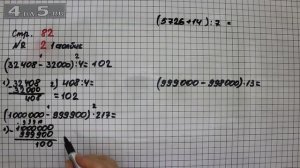 Стр. 82
№ 2 1 столбик
(32408 - 32000) : 4 = 102
1) 32408
32000
408
2) 408 : 4 =
= 102
(1000000 - 999900) · 217 =
1) 1000000
999900
100
(5726 + 14) : 7 =
(999000 - 998000) · 13 =